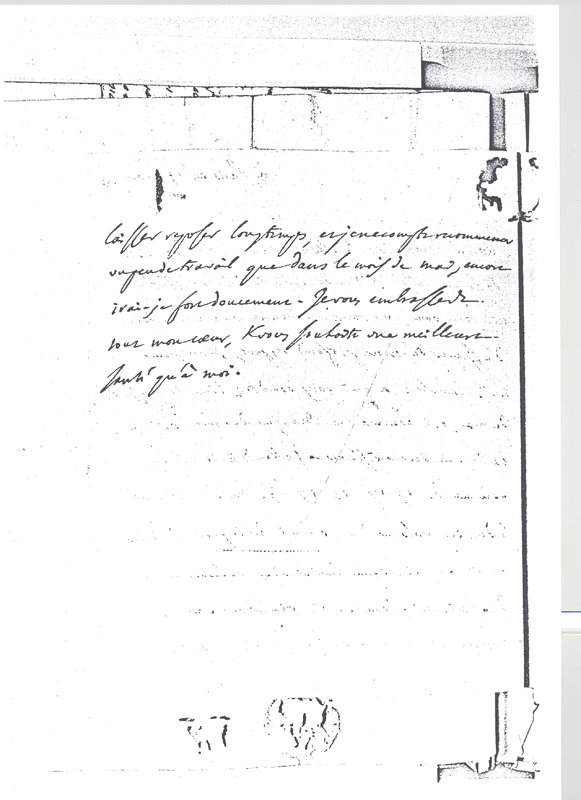 laisser reposer longtemps, et je ne compte recommencer
un peu de travail que dans le mois de mai, encore
irai-je fort doucement. Je vous embrasse de
tout mon cœur, & vous souhaite une meilleure
santé qu'à moi.